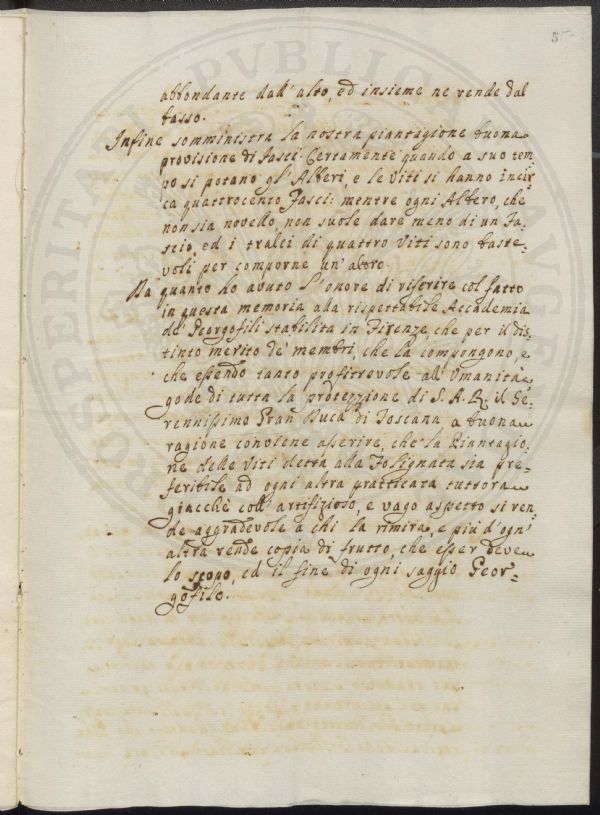 5
abbondante dall' alto, ed insieme ne rende dal
basso.
Infine somministra la nostra piantagione buona
provisione di Fasci. Certamente quando a suo tem„
po si potano gl' Alberi, e le Viti si hanno incir„
ca quattrocento Fasci: mentre ogni Albero, che
non sia novello, non suole dare meno di un Fa„
scio, ed i tralci di quattro Viti sono baste„
voli per comporne un' altro.
Da quanto ho avuto l' onore di riferire col fatto
in questa memoria alla rispettabile Accademia
de' Georgofili stabilita in Firenze, che per il dis„
tinto merito de' membri, che la compongono, e
che essendo tanto profittevole all' Umanità
gode di tutta la protezzione di S. A. R. il Se„
rennissimo Gran Duca di Toscana a buona
ragione conviene asserire, che la Piantagio„
ne delle Viti detta alla Folignata sia pre„
feribile ad ogni altra pratticata tuttora
giacchè coll' artifizioso, e vago aspetto si ren„
de aggradevole a chi la rimira, e più d' ogn'
altra rende copia di frutto, che esser deve
lo scopo, ed il fine di ogni saggio Geor„
gofilo.
PROSPERITATI PUBLICAE AUGENDAE